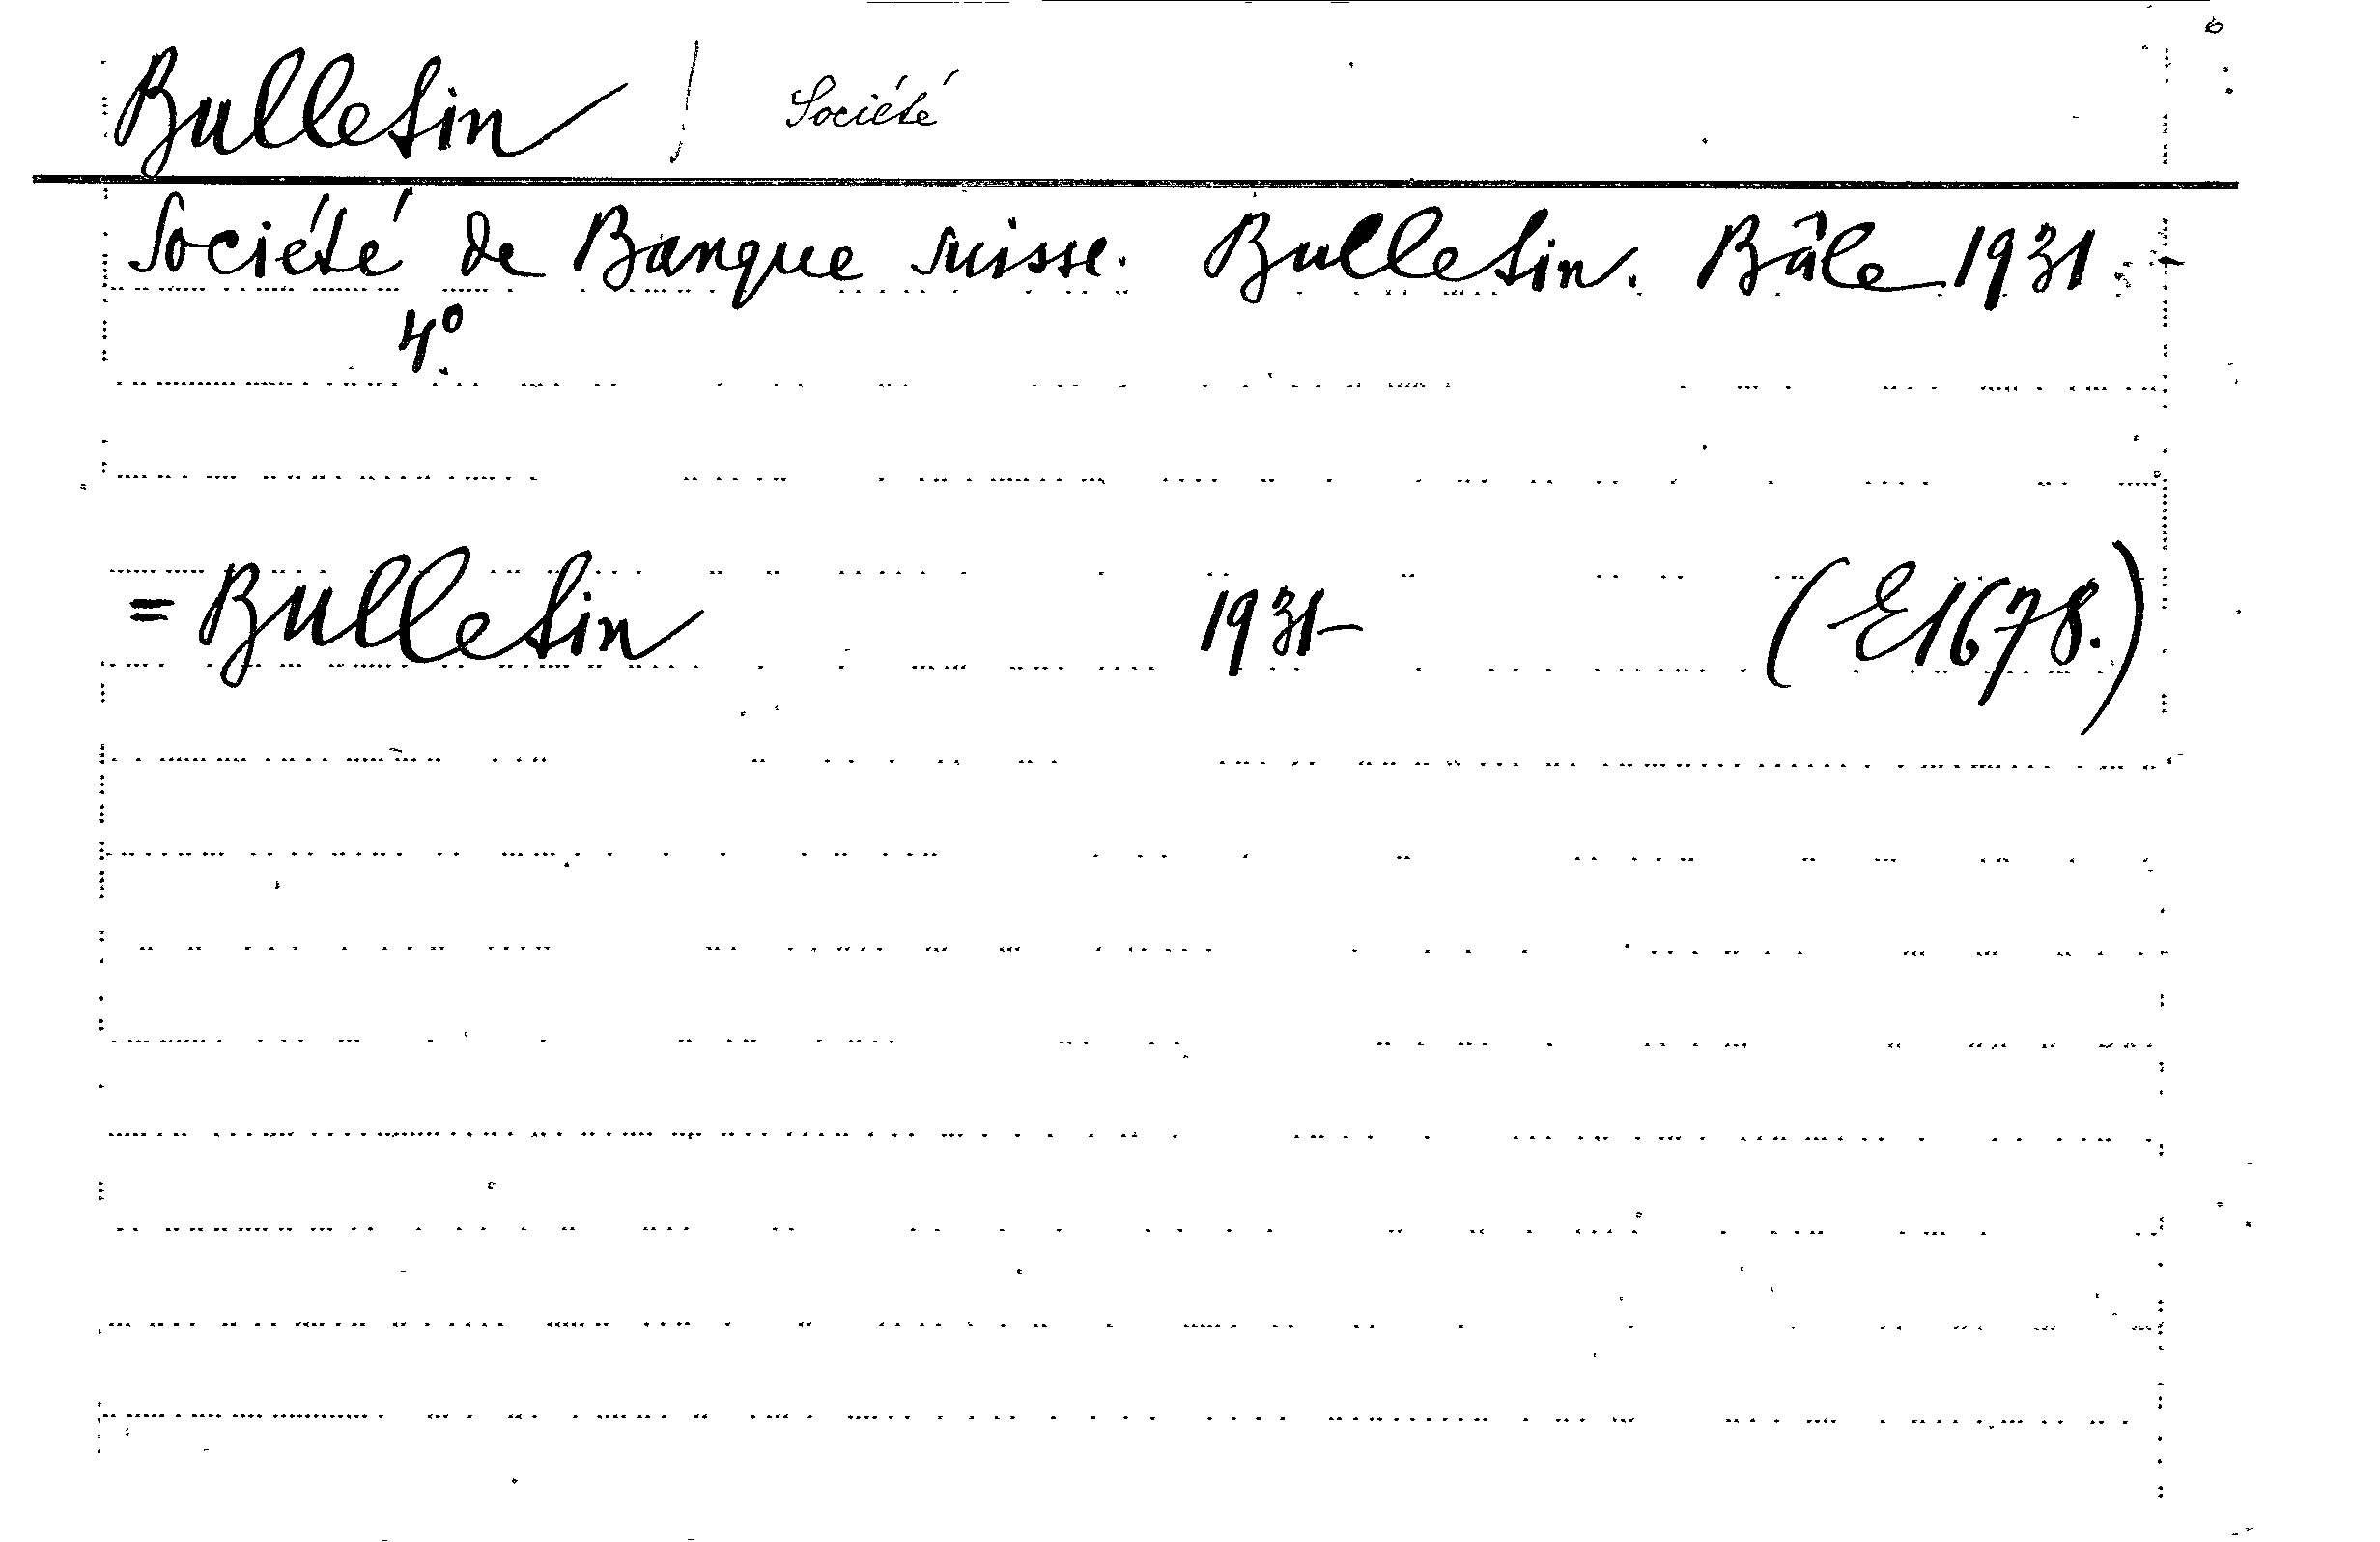 Bulletin / Société
Société de Banque suisse. Bulletin. Bâle 1931.-
4º
= Bulletin 1931- (E1678.)